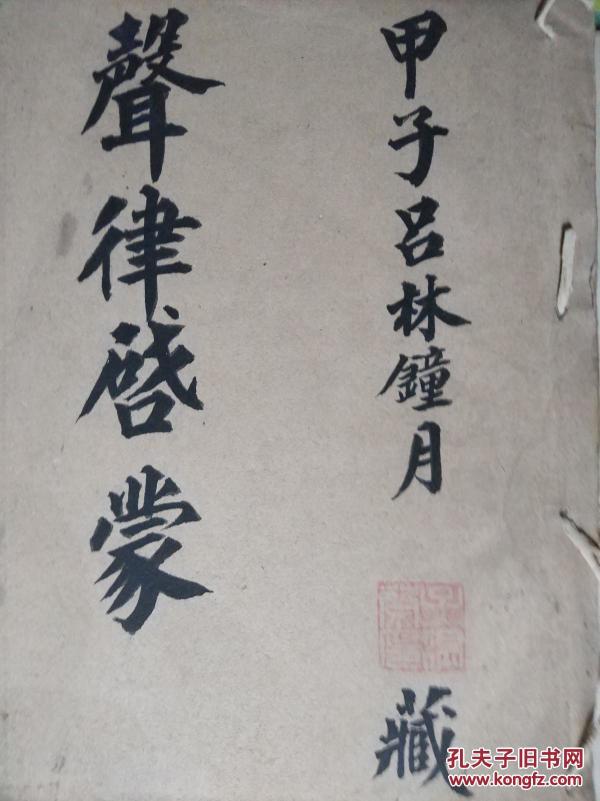 甲子吕林鐘月
藏
聲律啓蒙
孔夫子旧书网
www.kongfz.com